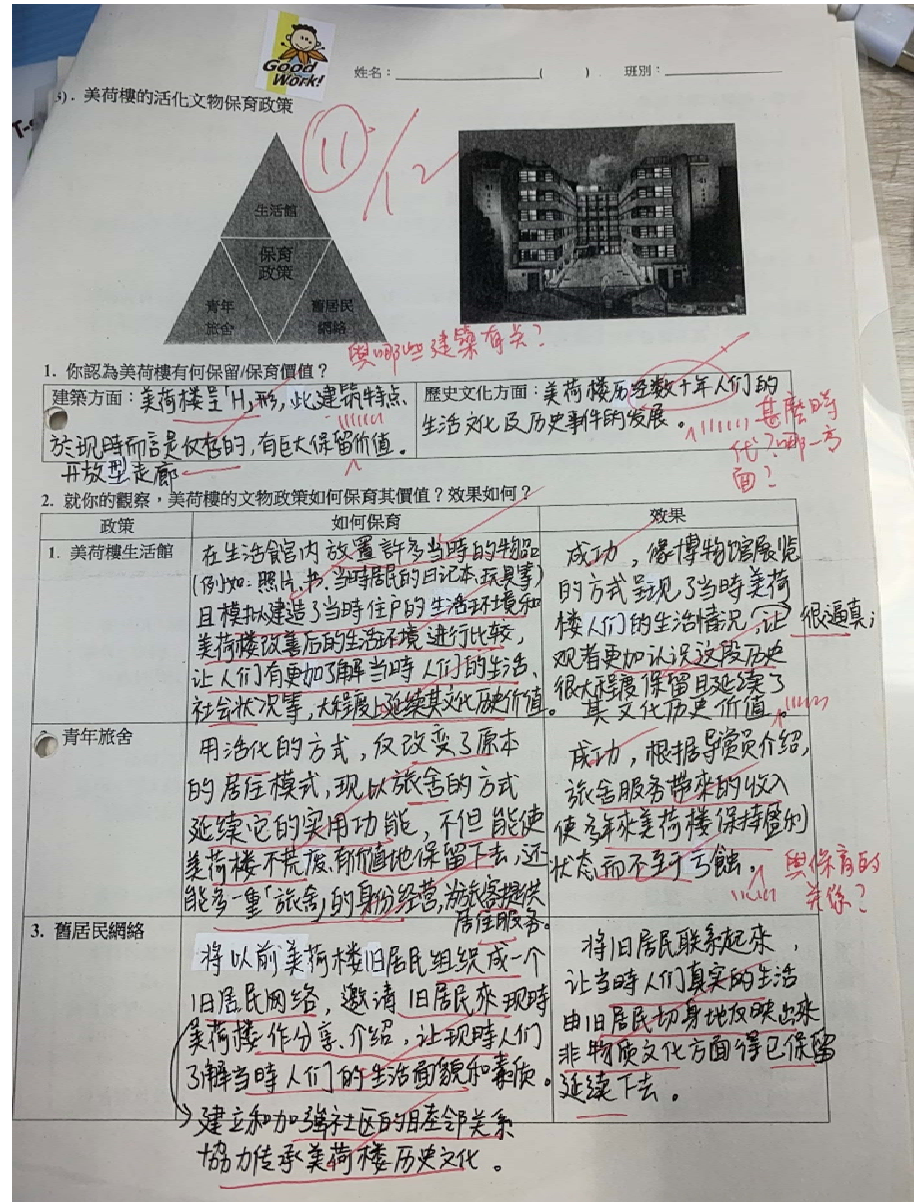 Good
Work!
姓名：________( ) 班別：________
3). 美荷樓的活化文物保育政策
11/12
生活館
保育
政策
青年
旅舍
舊居民
網絡
與哪些建築有关？
1. 你認為美荷樓有何保留/保育價值？
建築方面：美荷楼呈「H」形，此建筑特点
於现時而言是仅存的，有巨大保留价值。
开放型走廊
歷史文化方面：美荷楼历经数十年人们的
生活文化及历史事件的发展。
甚麼時
代？哪一方
面？
2. 就你的觀察，美荷樓的文物政策如何保育其價值？效果如何？
政策 如何保育 效果
1. 美荷樓生活館
在生活館内放置許多当時的物品
(例如：照片、书、当時居民的日记本、玩具等)
且模拟建造了当時住户的生活环境和
美荷楼改善后的生活环境进行比较，
让人们有更加了解当時人们的生活、
社会状况等，大程度上延续其文化历史价值。
成功，像博物馆展览
的方式呈现了当時美荷
楼人们的生活情况，让
很逼真；
观者更加认识这段历史
很大程度保留且延续了
其文化历史价值。
青年旅舍
用活化的方式，仅改变了原本
的居住模式，现以旅舍的方式
延续它的实用功能，不但能使
美荷楼不荒废、有价值地保留下去，还
能多一重「旅舍」的身份经营，为旅客提供
居住服务。
成功，根据导赏员介绍，
旅舍服务带来的收入
使多年来美荷楼保持盈利
状态而不至于亏蝕。
與保育的
关係？
3. 舊居民網絡
将以前美荷楼旧居民组织成一个
旧居民网络，邀请旧居民来现時
美荷楼作分享、介绍，让现時人们
了解当時人们的生活面貌和素质。
建立和加强社区的睦邻关系
協力传承美荷楼历史文化。
将旧居民联系起来，
让当時人们真实的生活
由旧居民切身地反映出来
非物质文化方面得已保留
延续下去。